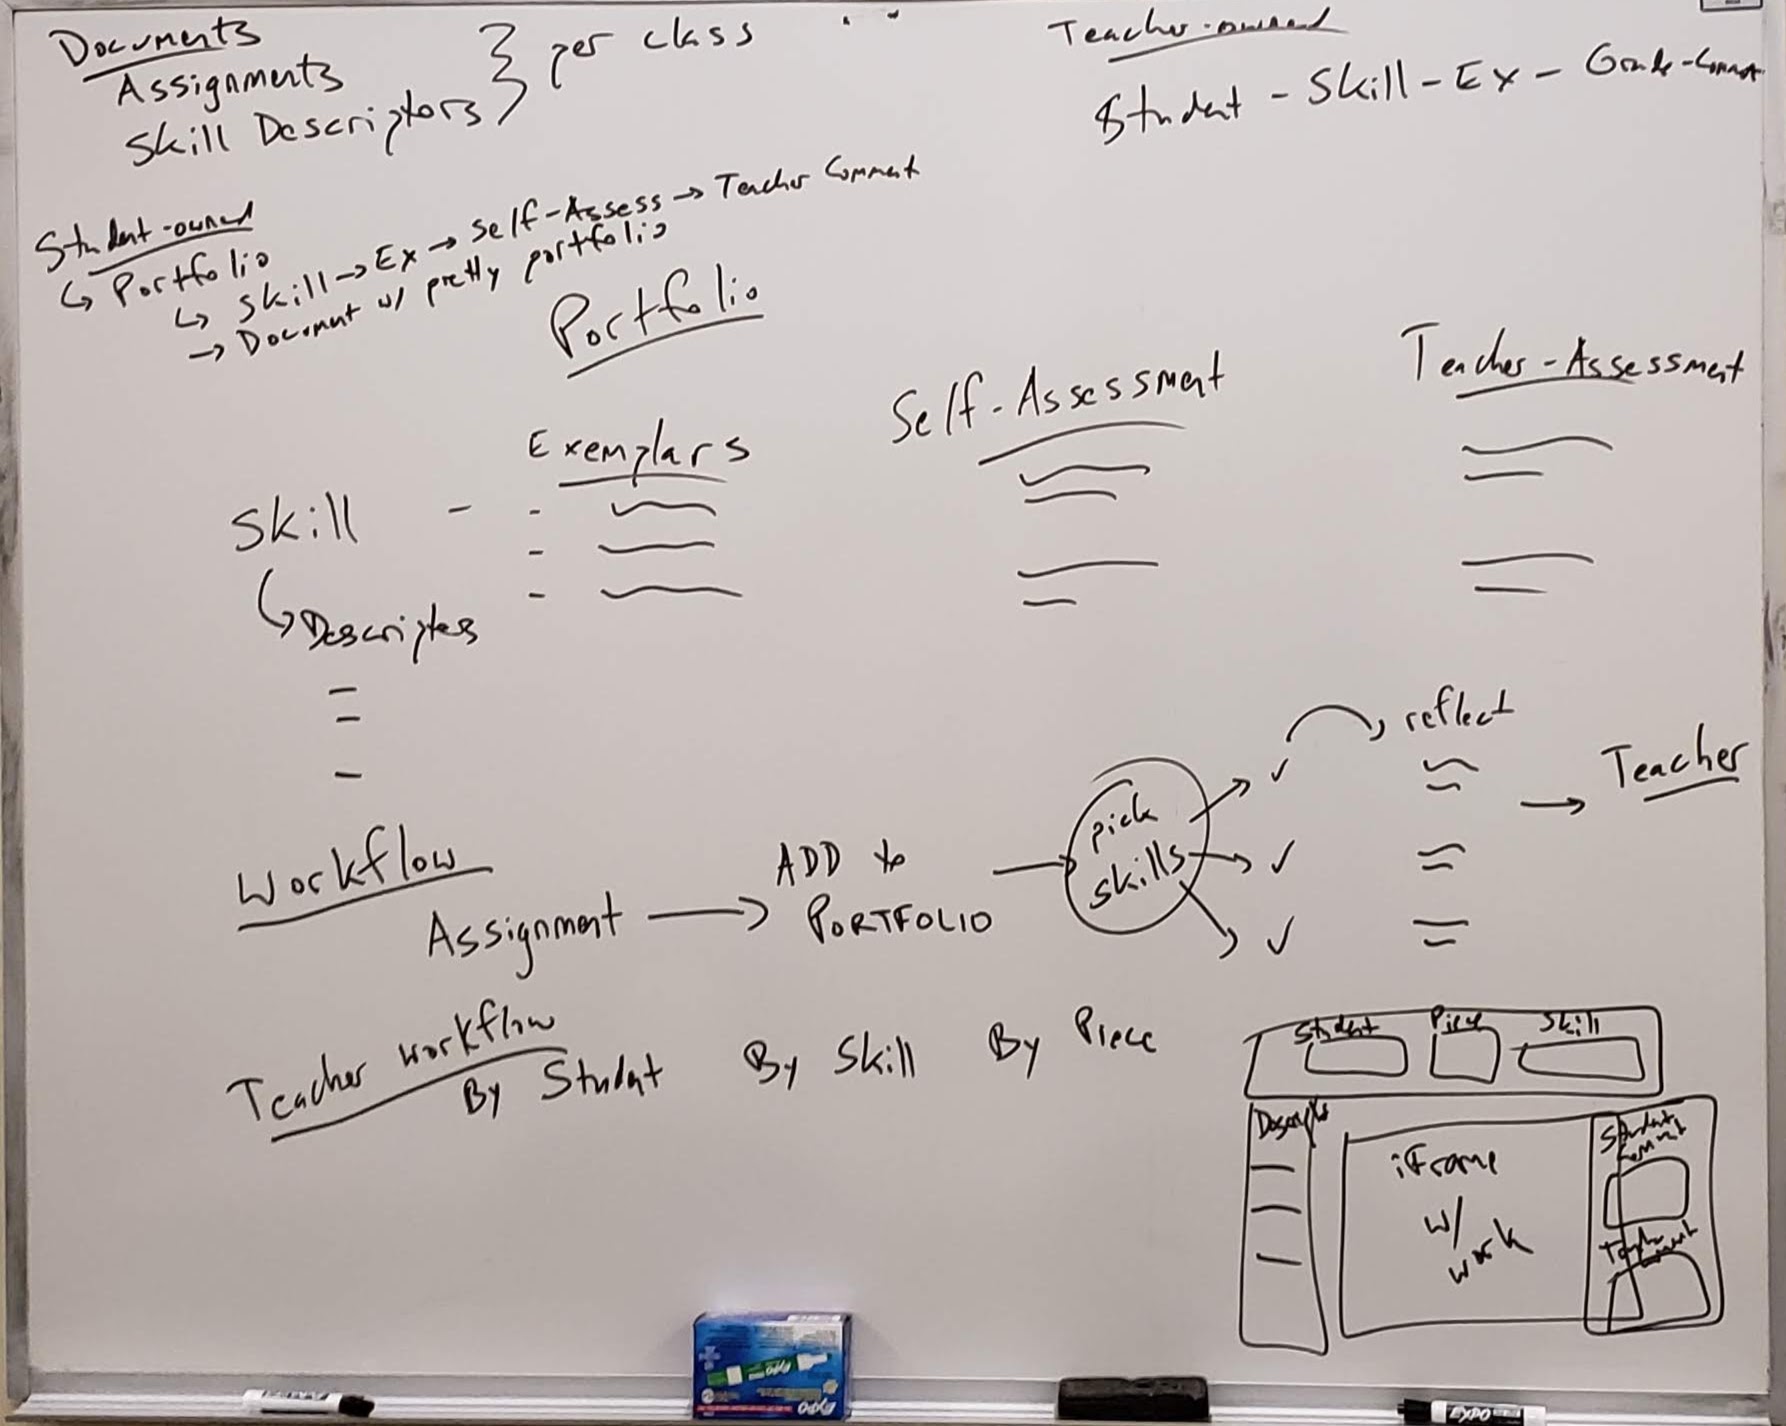 Documents
Assignments
Skill Descriptors
} per class
Teacher-owned
Student - Skill - Ex - Grade - Comment
Student-owned
↳ Portfolio
↳ Skill → Ex → Self-Assess → Teacher Comment
→ Document w/ pretty portfolio
Portfolio
Exemplars
Self-Assessment
Teacher-Assessment
Skill - -
↳ Descriptors
reflect
pick
skills
✓
✓
✓
→ Teacher
Workflow
Assignment → ADD to
PORTFOLIO
Teacher workflow
By Student By Skill By Piece
Student Piece Skill
iFrame
w/
work
Student
Comment
Teacher
Comment
EXPO
EXPO
EXPO